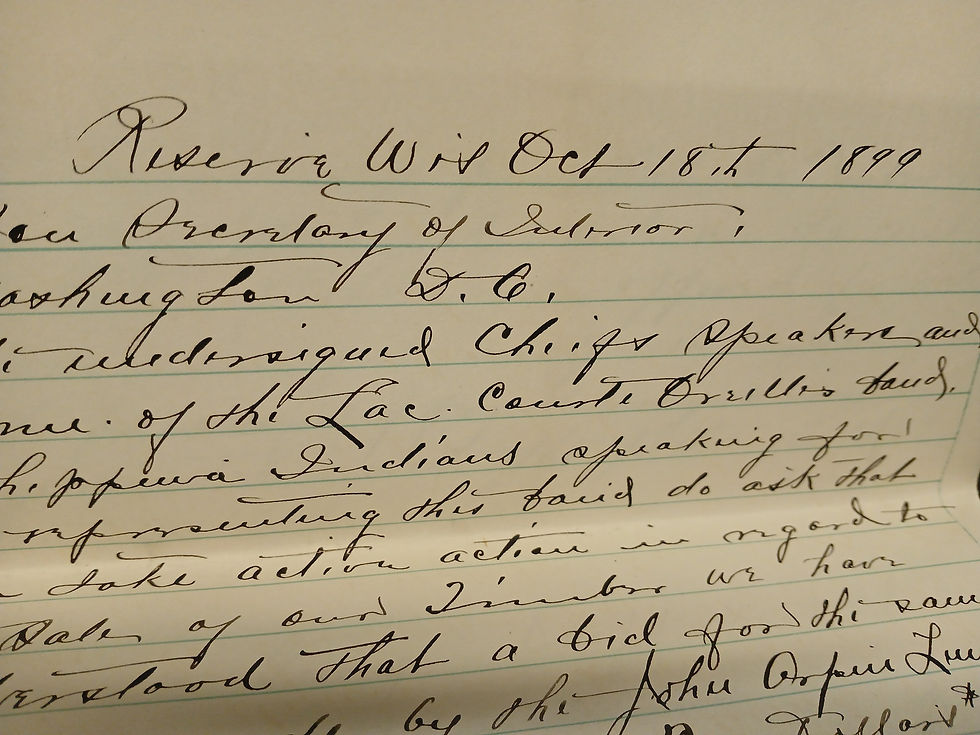 Reserve Wis Oct 18th 1899
Secretary of Interior,
ashington D.C.
undersigned Chiefs speakers and
of the Lac. Courte Oreilles band,
hippewa Indians speaking for
representing this band do ask that
take action action in regard to
Sale of our Timber we have
erstood that a bid for the same
by the John Arpin Lum